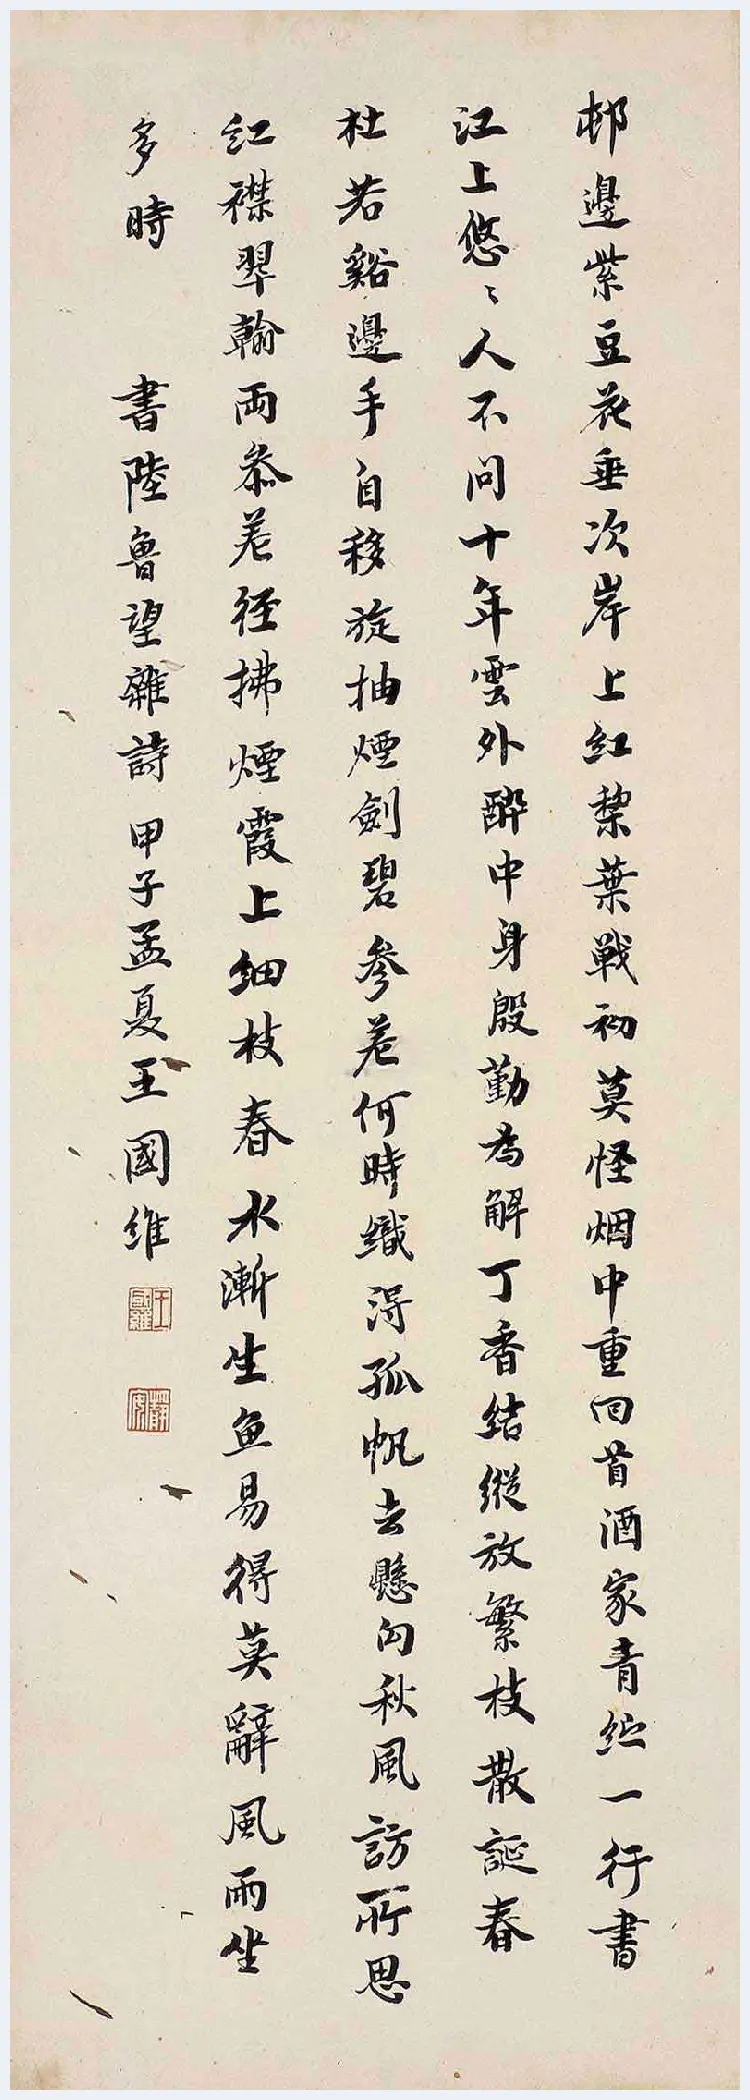 邨邊紫豆花垂次岸上紅棃葉戰初莫怪烟中重回首酒家青紵一行書
江上悠〻人不問十年雲外醉中身殷勤為解丁香結縱放繁枝散誕春
杜若谿邊手自移旋抽煙劍碧參差何時織得孤帆去懸向秋風訪所思
紅襟翠翰兩叅差徑拂煙霞上細枝春水漸生魚易得莫辭風雨坐
多時 書陸魯望雜詩 甲子孟夏王國維
王國維
靜安